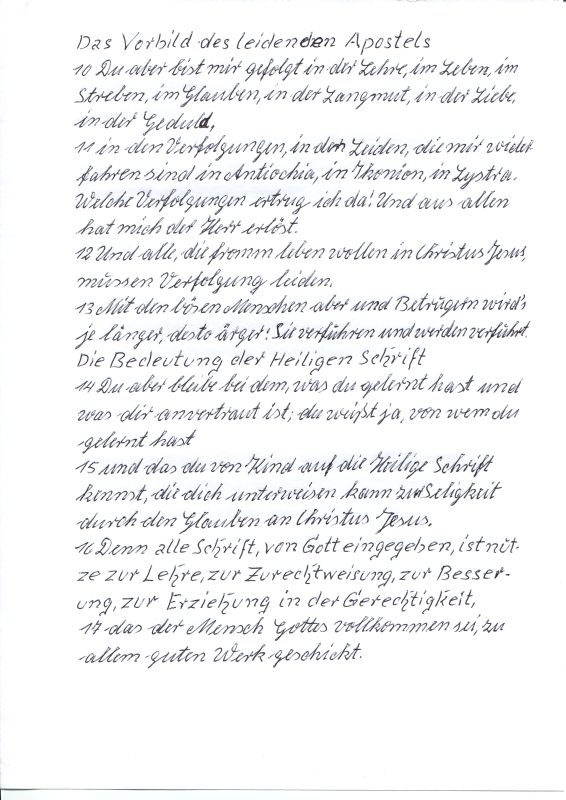 Das Vorbild des leidenden Apostels
10 Du aber bist mir gefolgt in der Lehre, im Leben, im
Streben, im Glauben, in der Langmut, in der Liebe,
in der Geduld,
11 in den Verfolgungen, in den Leiden, die mir wider
fahren sind in Antiochia, in Ikonion, in Lystra.
Welche Verfolgungen ertrug ich da! Und aus allen
hat mich der Herr erlöst.
12 Und alle, die fromm leben wollen in Christus Jesus,
müssen Verfolgung leiden.
13 Mit den bösen Menschen aber und Betrügern wird's
je länger, desto ärger: Sie verführen und werden verführt.
Die Bedeutung der Heiligen Schrift
14 Du aber bleibe bei dem, was du gelernt hast und
was dir anvertraut ist; du weißt ja, von wem du
gelernt hast
15 und das du von Kind auf die Heilige Schrift
kennst, die dich unterweisen kann zur Seligkeit
durch den Glauben an Christus Jesus.
16 Denn alle Schrift, von Gott eingegeben, ist nüt-
ze zur Lehre, zur Zurechtweisung, zur Besser-
ung, zur Erziehung in der Gerechtigkeit,
17 das der Mensch Gottes vollkommen sei, zu
allem guten Werk geschickt.